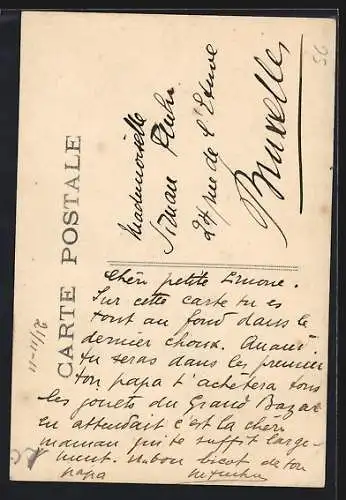 CARTE POSTALE
Mademoiselle
Simone
24 rue de l'Etuve
Bruxelles
Chère petite Simone.
Sur cette carte tu es
tout au fond dans le
dernier choux. Quand
tu seras dans les premier
ton papa t'achètera tous
les jouets du Grand Bazar
en attendant c'est la chère
maman qui te suffit large-
ment. un bon bisot de ton
papa
56